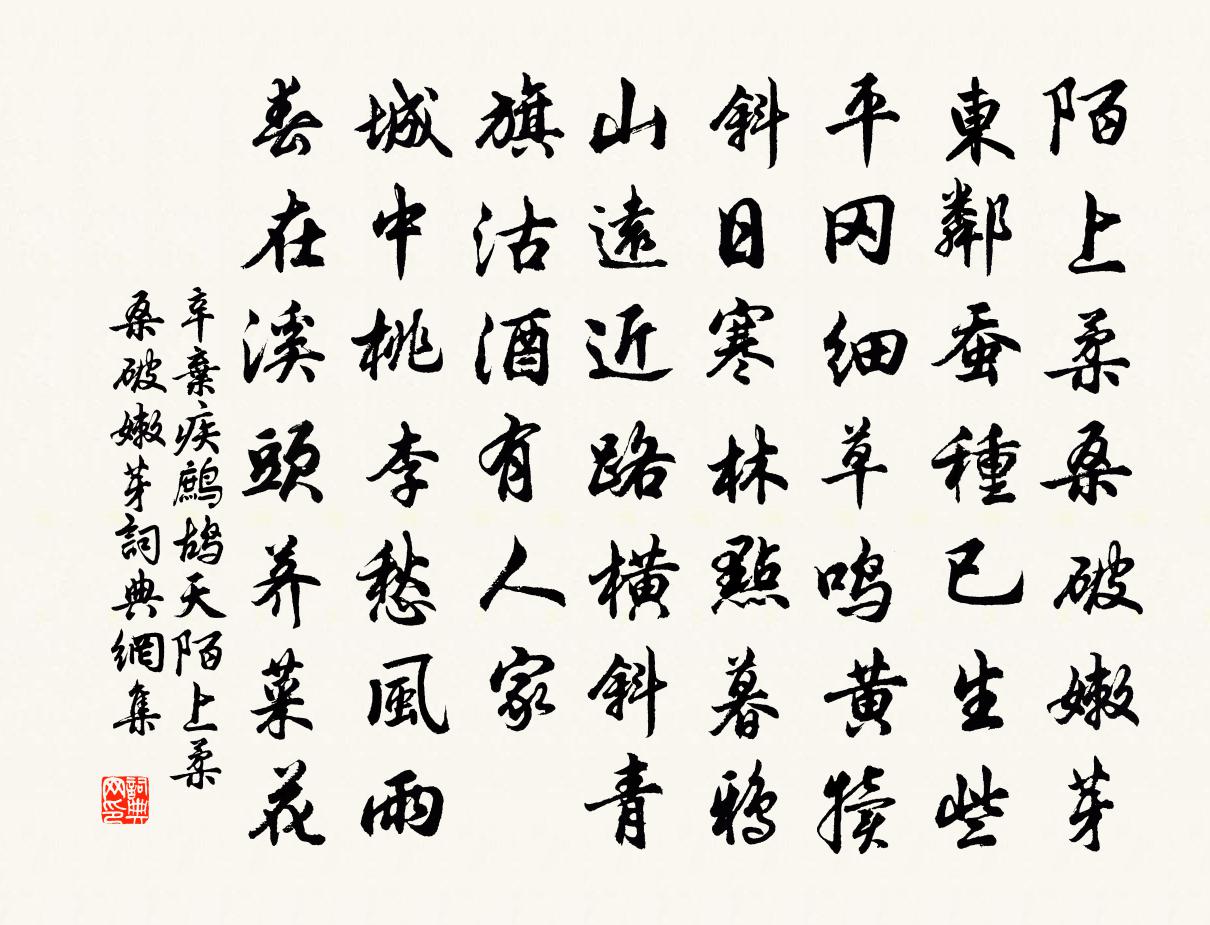 陌上柔桑破嫩芽
東鄰蚕種已生些
平冈细草鸣黄犢
斜日寒林點暮鸦
山遠近路橫斜青
旗沽酒有人家
城中桃李愁風雨
春在溪頭荠菜花
辛棄疾鷓鸪天陌上柔
桑破嫩芽詞典網集
詞典网印